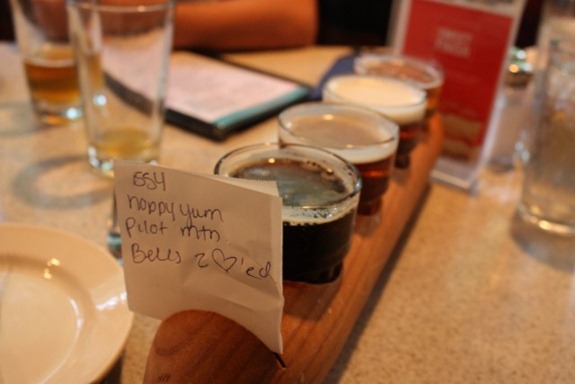 ESY
hoppy yum
Pilot mtn
Bells 2♡'ed